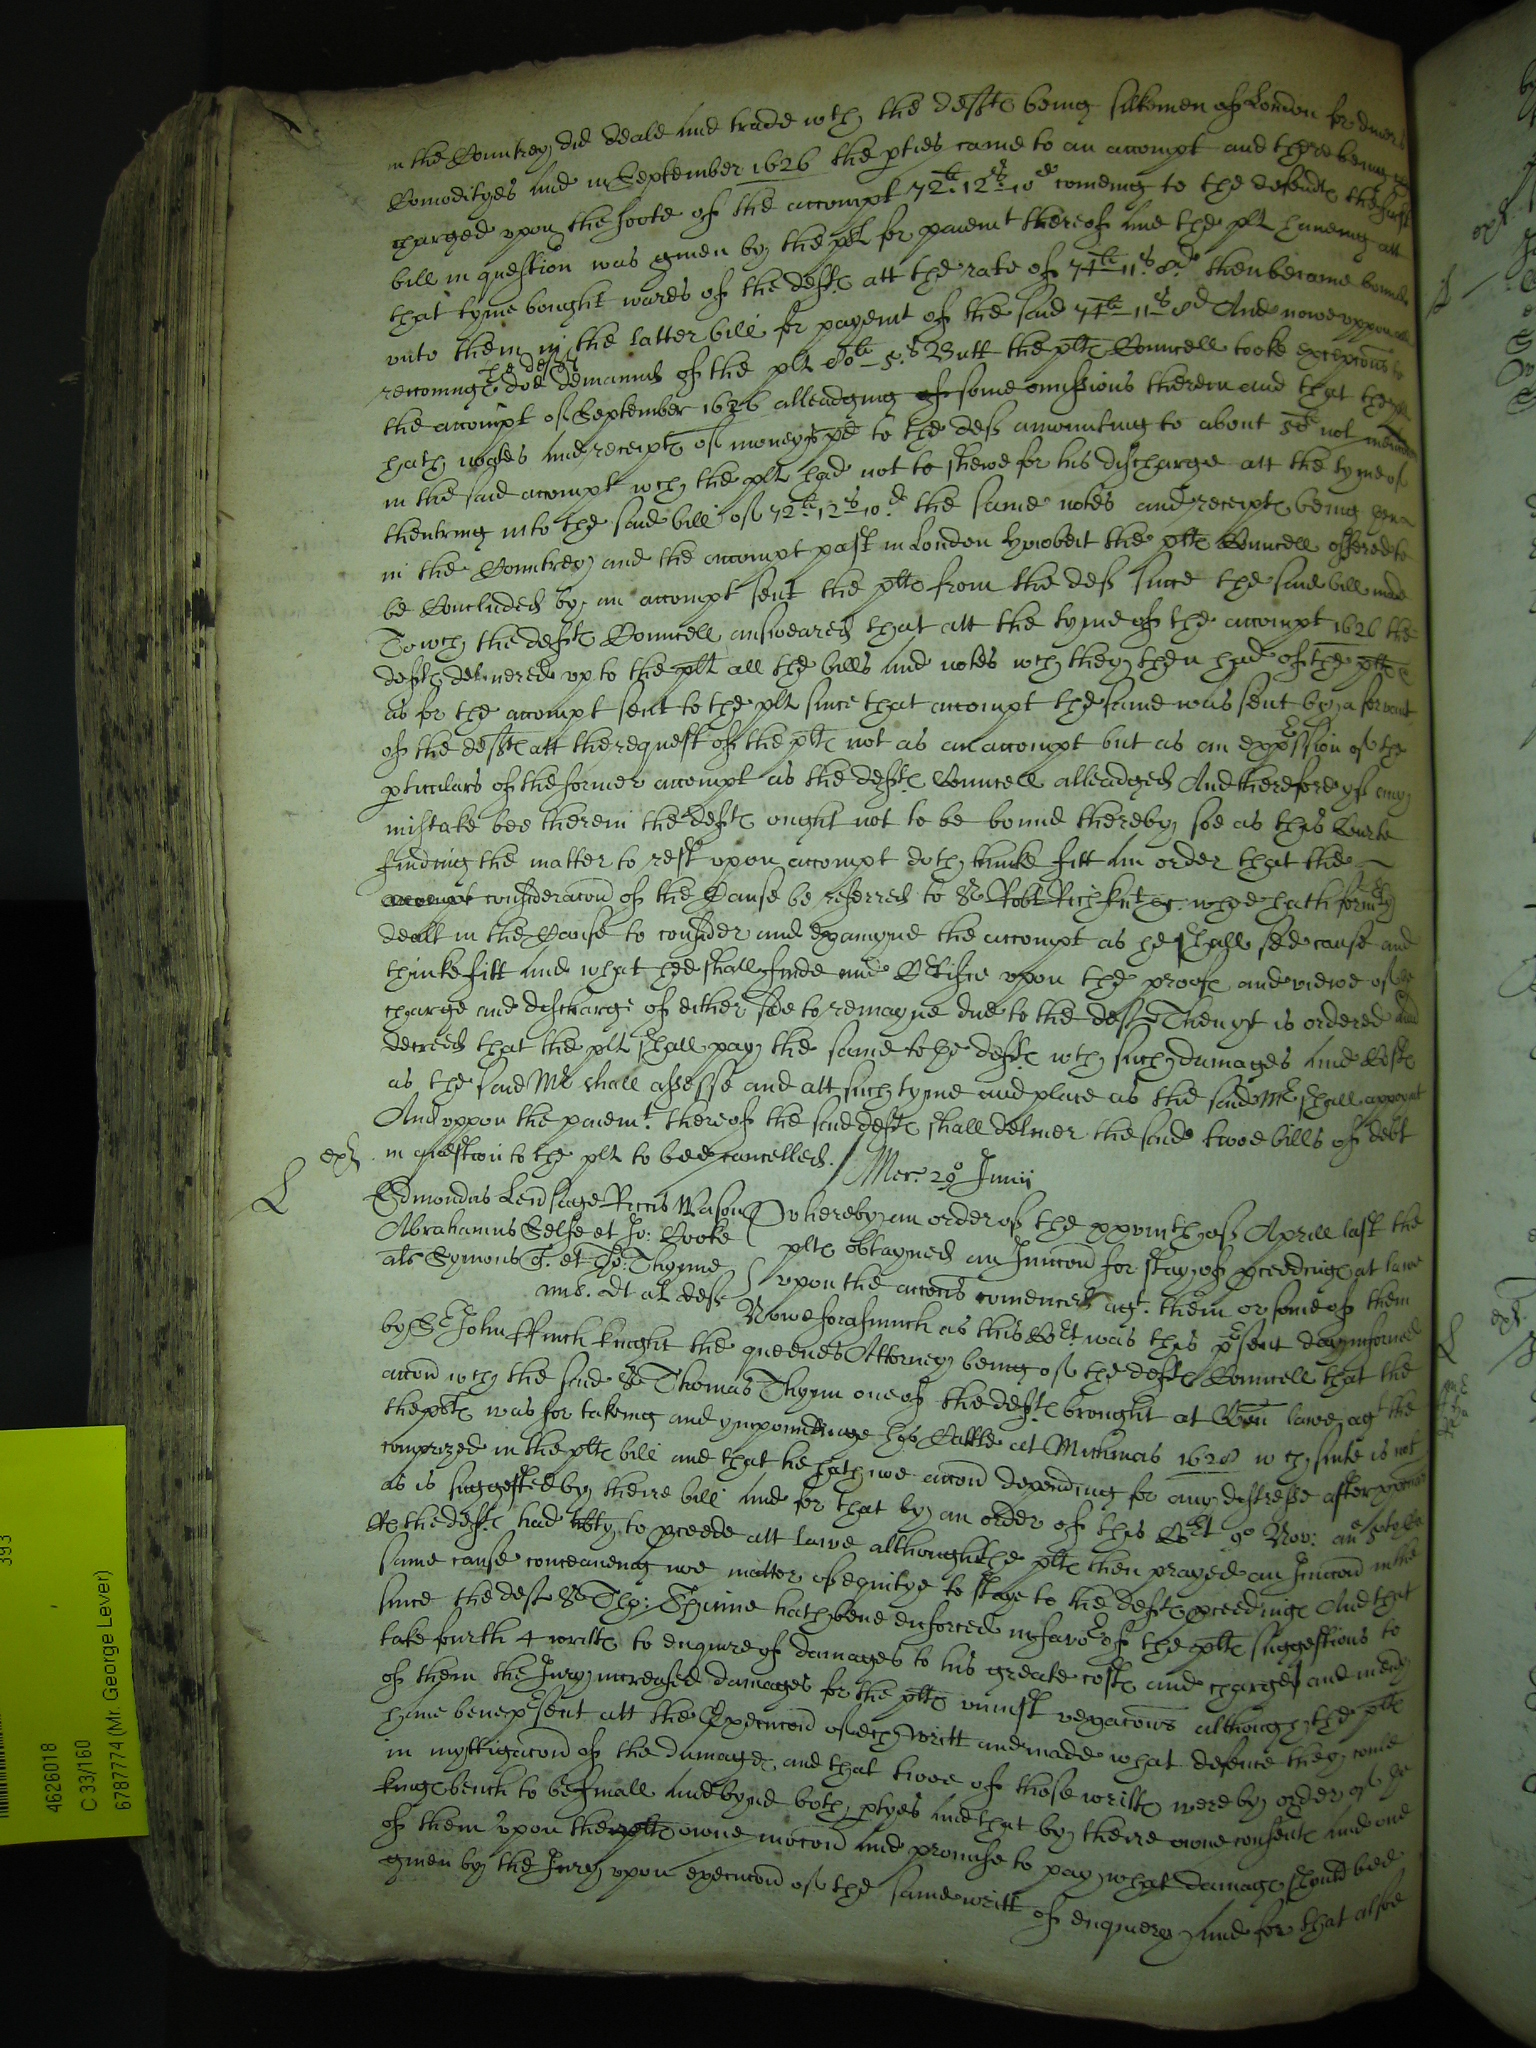 in the Countrey did deale and trade wth the defts being silkemen of London for divers
Comodityes and in September 1626 the pties came to an accompt and there being
charged upon the foote of the accompt 72li 12s 10d comeing to the defendts the first
bill in question was given by the plt for paiemt thereof and the plt haveing att
that tyme bought wares of the defts att the rate of 74li 11s 8d then became bound
unto them in the latter bill for payemt of the said 74li 11s 8d And nowe uppon all
reconings the defts doe demaund of the plt 80li 5s Butt the plts Councell tooke excepcions to
the accompt of September 1626 alleadging of some omissions therein and that the plt
hath noates and receipts of moneys pd to the deft amounting to about not
in the said accompt wch the plt had not to shewe for his discharge att the tyme of
thentring into the said bill of 72li 12s 10d the same notes and receipts being then
in the Countrey and the accompt past in London howbeit the plts Councell offered to
be Concluded by an accompt sent the plts from the deft since the said bill made
To wch the defts Councell answeared that att the tyme of the accompt 1626 the
defts delivered up to the plt all the bills and notes wch they then had of the plts
as for the accompt sent to the plt since that accompt the same was sent by a servant
of the defts att the request of the plts not as an accompt but as an expression of the
pticulars of the former accompt as the defts Councell alleadged And therefore yf any
mistake bee therein the defts ought not to be bound thereby soe as this Courte
finding the matter to rest upon accompt doth thinke fitt and order that the
accompt consideracon of the Cause be referred to Sr Robt Rich knt &c. whoe hath formerly
dealt in the Cause to consider and examyne the accompt as he shall see cause and
thinke fitt and what hee shall finde and Certifie upon the proofs and viewe of the
charge and discharge of either side to remayne due to the defts Then yt is ordered and
decreed that the plt shall pay the same to the defts wth such damages and Costs
as the said Mr shall assesse and att such tyme and place as the said Mr shall appoynt
And uppon the paiemt. thereof the said defts shall deliver the said twoe bills of debt
in question to the plt to bee cancelled. Mer: 20o Junii
Edmondus Lend Riccus Mason
Abrahamus Selfe et Jo: Cooke
als Symons et Tho: Thynne
mil. et al defts
Whereby an order of the of Aprill last the
plts obtayned an Iniuncon for stay of pceedings at lawe
upon the accons comenced agt. them or some of them
Nowe forasmuch as this Cort was this psent day informed
by Sr John Ffinch knight the queenes Attorney being of the defts Councell that the
accon wch the said Sr Thomas Thynn one of the defts brought at Comon lawe agt the
the plts was for takeing and ympoundinge his Cattle at Michmas 1628 wch suite is not
comprized in the plts bill and that he hath noe accon depending for any distresse after
as is suggested by theire bill and for that by an order of this Cort 9o Nov: ano
Rs the defts had libty to pceede att lawe although the plts then prayed an Iniuncon in the
same cause conceaveing noe matter of equitye to staye to the defts pceedings And that
since the deft Sr Tho: Thinne hath bene enforced in favor of the plts suggestions to
take fourth 4 writts to enquire of damages to his greate costs and charges and in
of them the Jury increased damages for the plts uniust vexacons although the plts
have bene psent att the Execucon of ech writt and made what defence they could
in myttigacon of the damages and that twoe of those writts were by order of the
kings bench to be finall and bynd both ptyes and that by theire owne consents and one
of them upon the plts owne mocon and promise to pay what damages should bee
given by the Jury upon execucon of the same writt of enquiery and for that alsoe
4626018
C 33/160
6787774 (Mr. George Lever)
393